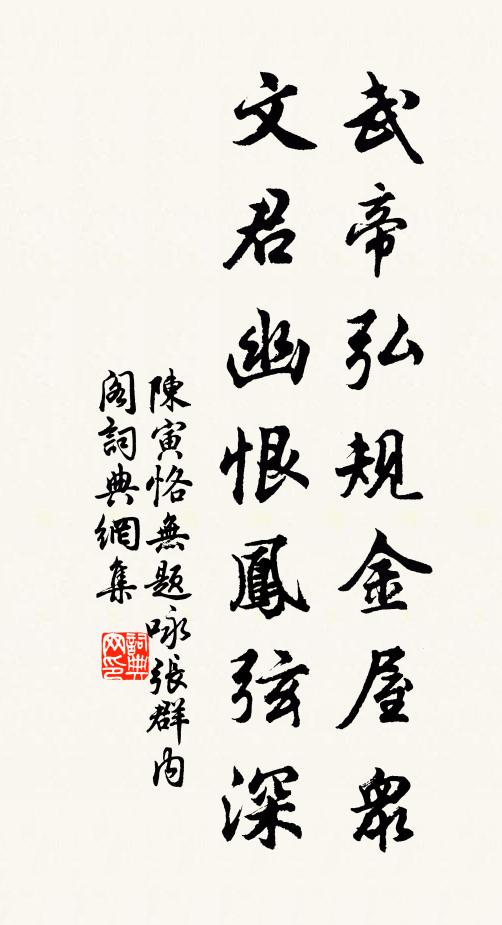 武帝弘規金屋眾
文君幽恨鳳弦深
陳寅恪無題咏張群内
閣詞典網集
詞典網印